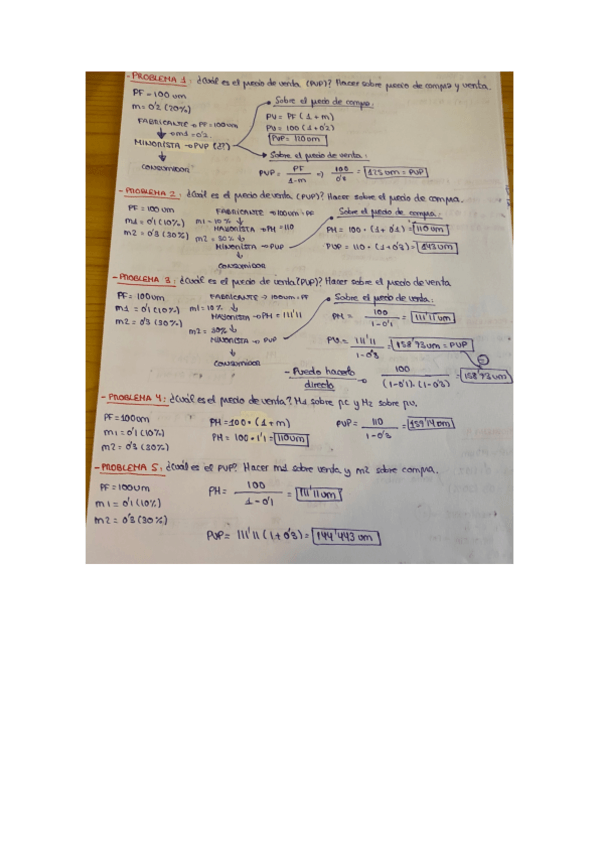 - PROBLEMA 1: ¿Cuál es el precio de venta (PVP)? Hacer sobre precio de compra y venta.
PF = 100 um
m = 0'2 (20%)
FABRICANTE → PF = 100um
→ m1 = 0'2
MINORISTA → PVP (??)
CONSUMIDOR
→ Sobre el precio de compra:
PV = PF (1+m)
PV = 100 (1+0'2)
PVP = 120um
→ Sobre el precio de venta:
PVP = PF / 1-m => 100 / 0'8 = 125um = PVP
- PROBLEMA 2: ¿Cuál es el precio de venta (PVP)? Hacer sobre el precio de compra.
PF = 100 um
m1 = 0'1 (10%)
m2 = 0'3 (30%)
FABRICANTE → 100um = PF
m1 = 10% ↓
MAYORISTA → PM = 110
m2 = 30% ↓
MINORISTA → PVP
CONSUMIDOR
→ Sobre el precio de compra:
PM = 100 · (1+0'1) = 110um
PVP = 110 · (1+0'3) = 143um
- PROBLEMA 3: ¿Cuál es el precio de venta (PVP)? Hacer sobre el precio de venta
PF = 100um
m1 = 0'1 (10%)
m2 = 0'3 (30%)
FABRICANTE → 100um = PF
m1 = 10% ↓
MAYORISTA → PM = 111'11
m2 = 30% ↓
MINORISTA → PVP
CONSUMIDOR
→ Sobre el precio de venta:
PM = 100 / 1-0'1 = 111'11 um
PV = 111'11 / 1-0'3 = 158'73um = PVP
=
- Puedo hacerlo directo → 100 / (1-0'1)·(1-0'3) = 158'73um
- PROBLEMA 4: ¿Cuál es el precio de venta? M1 sobre p.c y M2 sobre p.v.
PF = 100um
m1 = 0'1 (10%)
m2 = 0'3 (30%)
PM = 100 · (1+m)
PM = 100 · 1'1 = 110um
PVP = 110 / 1-0'3 = 159'14um
- PROBLEMA 5: ¿Cuál es el PVP? Hacer m1 sobre venta y m2 sobre compra.
PF = 100um
m1 = 0'1 (10%)
m2 = 0'3 (30%)
PM = 100 / 1-0'1 = 111'11 um
PVP = 111'11 (1+0'3) = 144'443 um